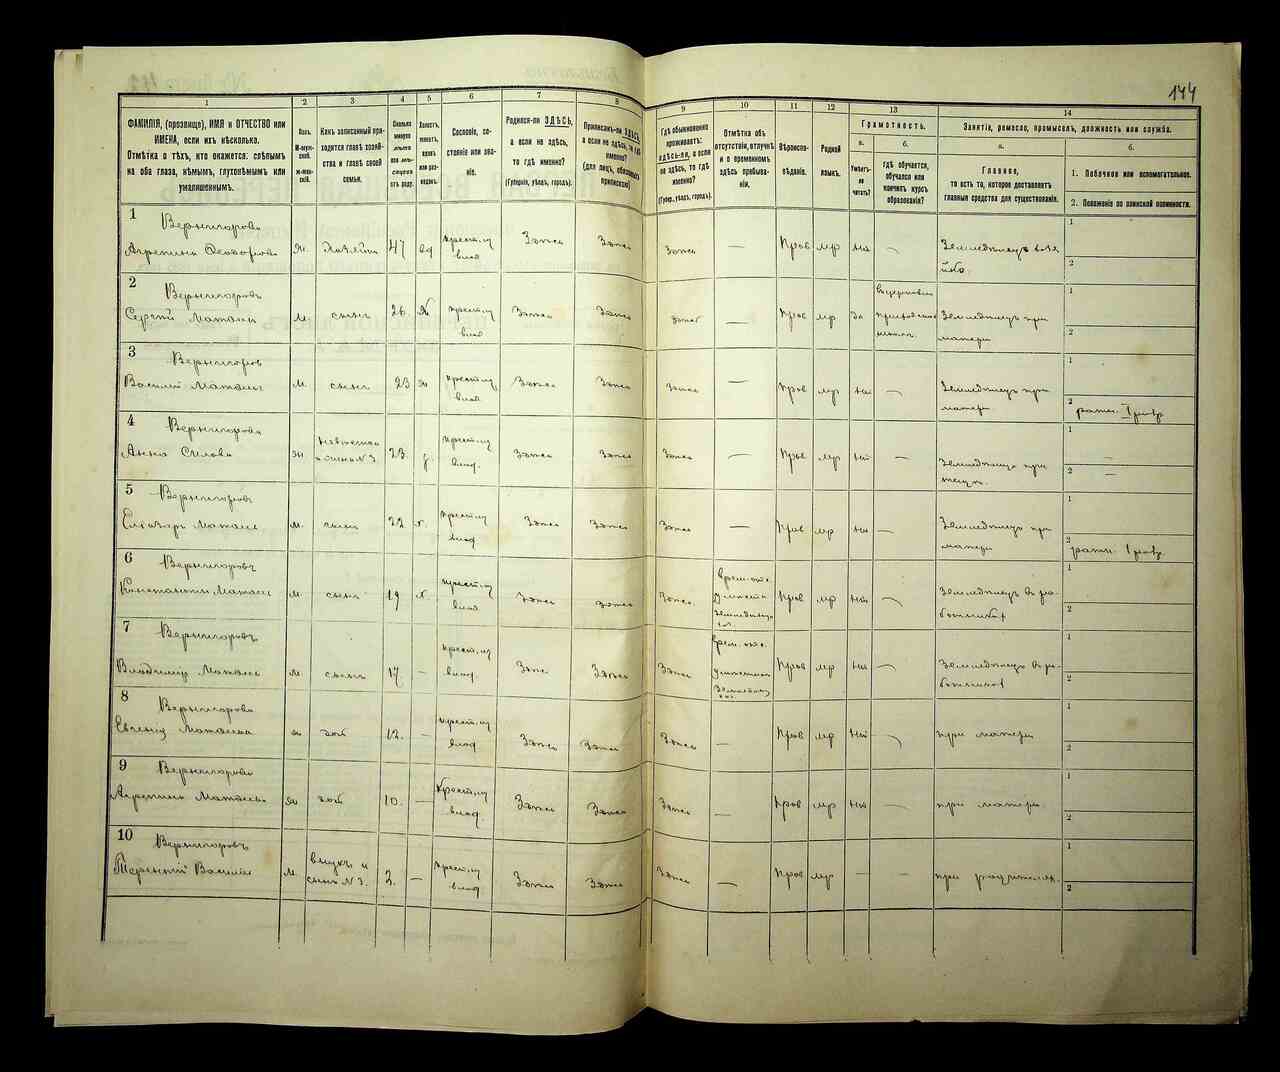 144
1
2
3
4
5
6
7
8
9
10
11
12
13
14
ФАМИЛІЯ, (прозвище), ИМЯ и ОТЧЕСТВО или
ИМЕНА, если ихъ нѣсколько.
Отмѣтка о тѣхъ, кто окажется: слѣпымъ
на оба глаза, нѣмымъ, глухонѣмымъ или
умалишеннымъ.
Полъ.
М-муж-
ской.
ж-жен-
скій.
Какъ записанный при-
ходится главѣ хозяй-
ства и главѣ своей
семьи.
Сколько
минуло
лѣтъ
или мѣ-
сяцевъ
отъ роду.
Холостъ,
женатъ,
вдовъ
или раз-
веденъ.
Сословіе, со-
стояніе или зва-
ніе.
Родился-ли ЗДѢСЬ,
а если не здѣсь,
то гдѣ именно?
(Губернія, уѣздъ, городъ).
Приписанъ-ли ЗДѢСЬ,
а если не здѣсь, то гдѣ
именно?
(для лицъ, обязанныхъ
припискою)
Гдѣ обыкновенно
проживаетъ:
здѣсь-ли, а если
не здѣсь, то гдѣ
именно?
(Губер., уѣздъ, городъ).
Отмѣтка объ
отсутствіи, отлучкѣ
и о временномъ
здѣсь пребыва-
ніи.
Вѣроиспо-
вѣданіе.
Родной
языкъ.
Грамотность.
а.
б.
Умѣетъ-
ли
читать?
гдѣ обучается,
обучался или
кончилъ курсъ
образованія?
Занятіе, ремесло, промыселъ, должность или служба.
а.
б.
Главное,
то есть то, которое доставляетъ
главныя средства для существованія.
1. Побочное или вспомогательное.
2. Положеніе по воинской повинности.
1
Вернигорова
Агрепина Феодорова
ж.
Хозяйка
47
вд
крест. из
влад
Здесь
Здесь
Здесь
—
Прав
мр
на
—
1
2
2
Вернигоровъ
Сергѣй
М.
сынъ
26
крест. из
влад
Здесь
Здесь
Здесь
—
Прав
мр
да
Земледѣлецъ при
матери
1
2
3
Вернигоровъ
Василій
М.
сынъ
23
крест. из
влад
Здесь
Здесь
Здесь
—
Прав
мр
—
Земледѣлецъ при
матери
1
2 ратн. I разр
4
Вернигорова
Анна
ж
23.
крест. из
влад.
Здесь
Здесь
Здесь
—
Прав
мр
—
Земледѣлецъ при
1 —
2 —
5
Вернигоровъ
М.
сынъ
22
х.
крест. из
влад
Здесь
Здесь
Здесь
—
Прав
мр
—
Земледѣлецъ при
матери
1
2 ратн. I разр
6
Вернигоровъ
Константинъ
м
сынъ
19
х.
крест. из
влад
Здесь
Здесь
Здесь
Прав
мр
—
Земледѣлецъ в ра-
ботниках
1
2
7
Вернигоровъ
Владимір
м.
сынъ
17.
—
крест. из
влад.
Здесь
Здесь
Здесь
Прав
мр
—
Земледѣлецъ в ра-
ботниках
1
2
8
Вернигорова
Евгенія
ж
доч
12.
—
крест. из
влад
Здесь
Здесь
Здесь
—
Прав
мр
—
при матери
1
2
9
Вернигорова
Агрепина
ж
доч
10.
—
Крест. из
влад
Здесь
Здесь
Здесь
—
Прав
мр
—
при матери
1
2
10
Вернигоровъ
Терентій Василіев
М
внукъ и
сынъ №3.
2.
—
крест. из
влад
Здесь
Здесь
Здесь
—
Прав
мр
—
—
при родителях
1
2